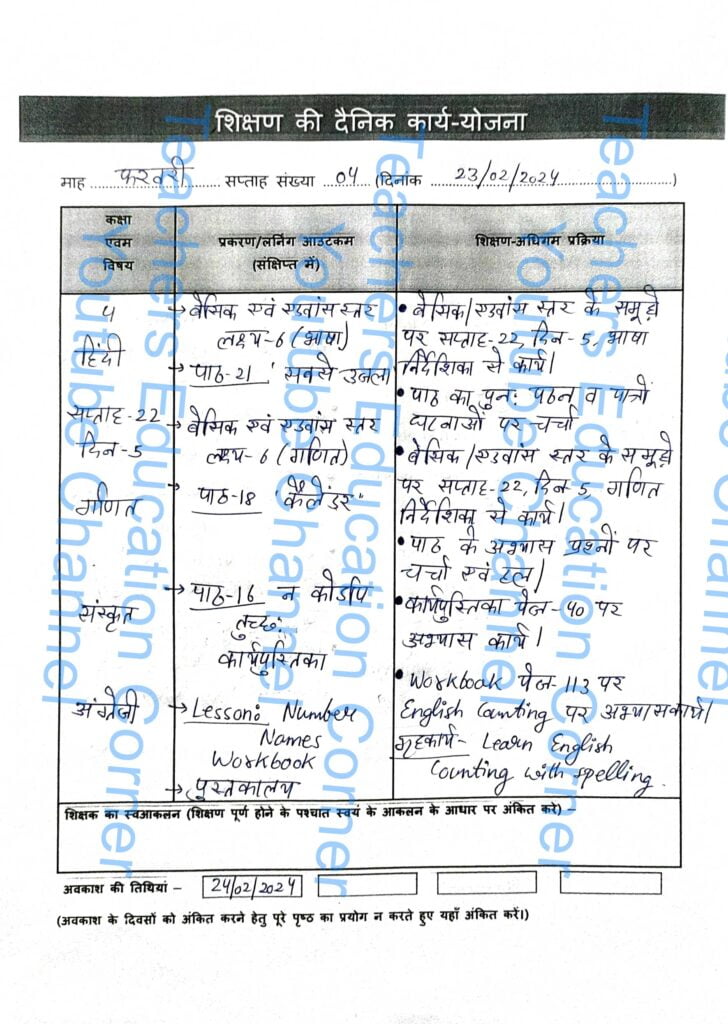 शिक्षण की दैनिक कार्य-योजना
माह फरवरी सप्ताह संख्या 04 (दिनांक 23/02/2024)
कक्षा एवम विषय
प्रकरण/लर्निंग आउटकम (संक्षिप्त में)
शिक्षण-अधिगम प्रक्रिया
५
हिंदी
सप्ताह-22
दिन-5
गणित
संस्कृत
अंग्रेजी
→ बेसिक एवं एडवांस स्तर
लक्ष्य-6 (भाषा)
→ पाठ-21 'सबसे उजला'
→ बेसिक एवं एडवांस स्तर
लक्ष्य-6 (गणित)
→ पाठ-18 "कैलेंडर"
→ पाठ-16 न कोऽपि
तुच्छः
कार्यपुस्तिका
→ Lesson: Number
Names
Workbook
→ पुस्तकालय
• बेसिक/एडवांस स्तर के समूहों
पर सप्ताह-22, दिन-5, भाषा
निर्देशिका से कार्य।
• पाठ का पुनः पठन व पात्रों
घटनाओं पर चर्चा
• बेसिक/एडवांस स्तर के समूहों
पर सप्ताह-22, दिन-5, गणित
निर्देशिका से कार्य।
• पाठ के अभ्यास प्रश्नों पर
चर्चा एवं हल।
• कार्यपुस्तिका पेज-40 पर
अभ्यास कार्य।
• Workbook पेज-113 पर
English Counting पर अभ्यासकार्य।
गृहकार्य- Learn English
Counting with spelling.
शिक्षक का स्वआकलन (शिक्षण पूर्ण होने के पश्चात स्वयं के आकलन के आधार पर अंकित करे) –
अवकाश की तिथियां – 24/02/2024
(अवकाश के दिवसों को अंकित करने हेतु पूरे पृष्ठ का प्रयोग न करते हुए यहाँ अंकित करें।)
Teachers Education Corner
Youtube Channel
Teachers Education Corner
Youtube Channel
Teachers Education Corner
Youtube Channel